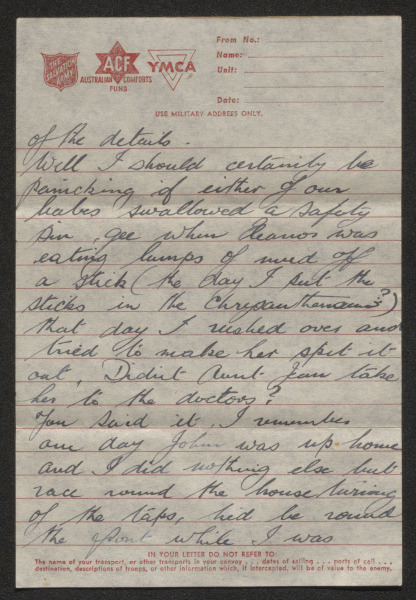 THE SALVATION ARMY
ACF
AUSTRALIAN COMFORTS FUND
YMCA
From No.:
Name:
Unit:
Date:
USE MILITARY ADDRESS ONLY.
of the details.
Well I should certainly be
panicking if either of our
babes swallowed a safety
pin, gee when Eleanor was
eating lumps of mud off
a stick (the day I put the
sticks in the Chrysanthemums?)
that day I rushed over and
tried to make her spit it
out. Didn't Aunt Jean take
her to the doctors?
You said it, I remember
one day John was up home
and I did nothing else but
race round the house turning
of the taps, he'd be round
the front while I was
IN YOUR LETTER DO NOT REFER TO:
The name of your transport, or other transports in your convoy . . . dates of sailing . . . ports of call . . .
destination, descriptions of troops, or other information which, if intercepted, will be of value to the enemy.